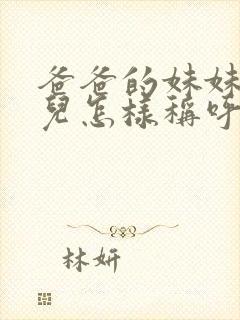 爸爸的妹妹
兒怎樣稱呼
林妍